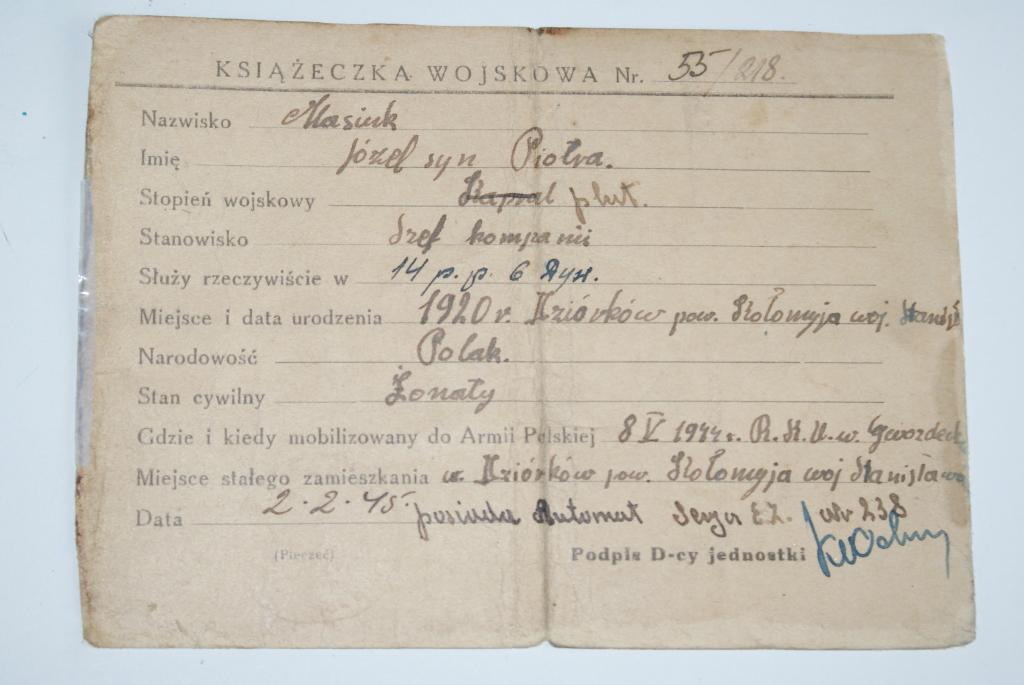 KSIĄŻECZKA WOJSKOWA Nr. 55/218.
Nazwisko Masiuk
Imię Józef syn Piotra.
Stopień wojskowy Kapral plut.
Stanowisko Szef kompanii
Służy rzeczywiście w 14 p.p. 6 Dyw.
Miejsce i data urodzenia 1920 r. pow. Kołomyja woj.
Narodowość Polak.
Stan cywilny Żonaty
Gdzie i kiedy mobilizowany do Armii Polskiej 8 V 1944 r. R.K.U. w.
Miejsce stałego zamieszkania pow. Kołomyja woj
Data 2.2.45. posiada Automat Nr 238
(Pieczęć) Podpis D-cy jednostki